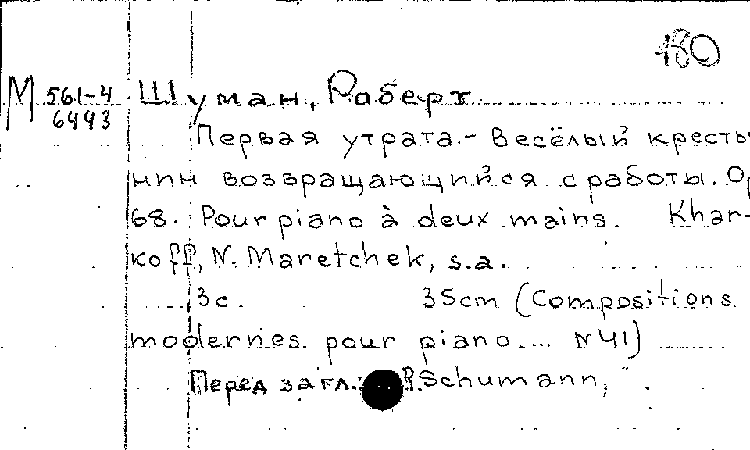 180
М 561-4 Шуман, Роберт
6493
Первая утрата.- Весёлый кресть
нин возвращающийся с работы. Op
68. Pour piano à deux mains. Khar-
koff, N. Maretchek, s.a.
3с. 35cm (Compositions
modernes pour piano... N41)
Перед загл.: R.Schumann,